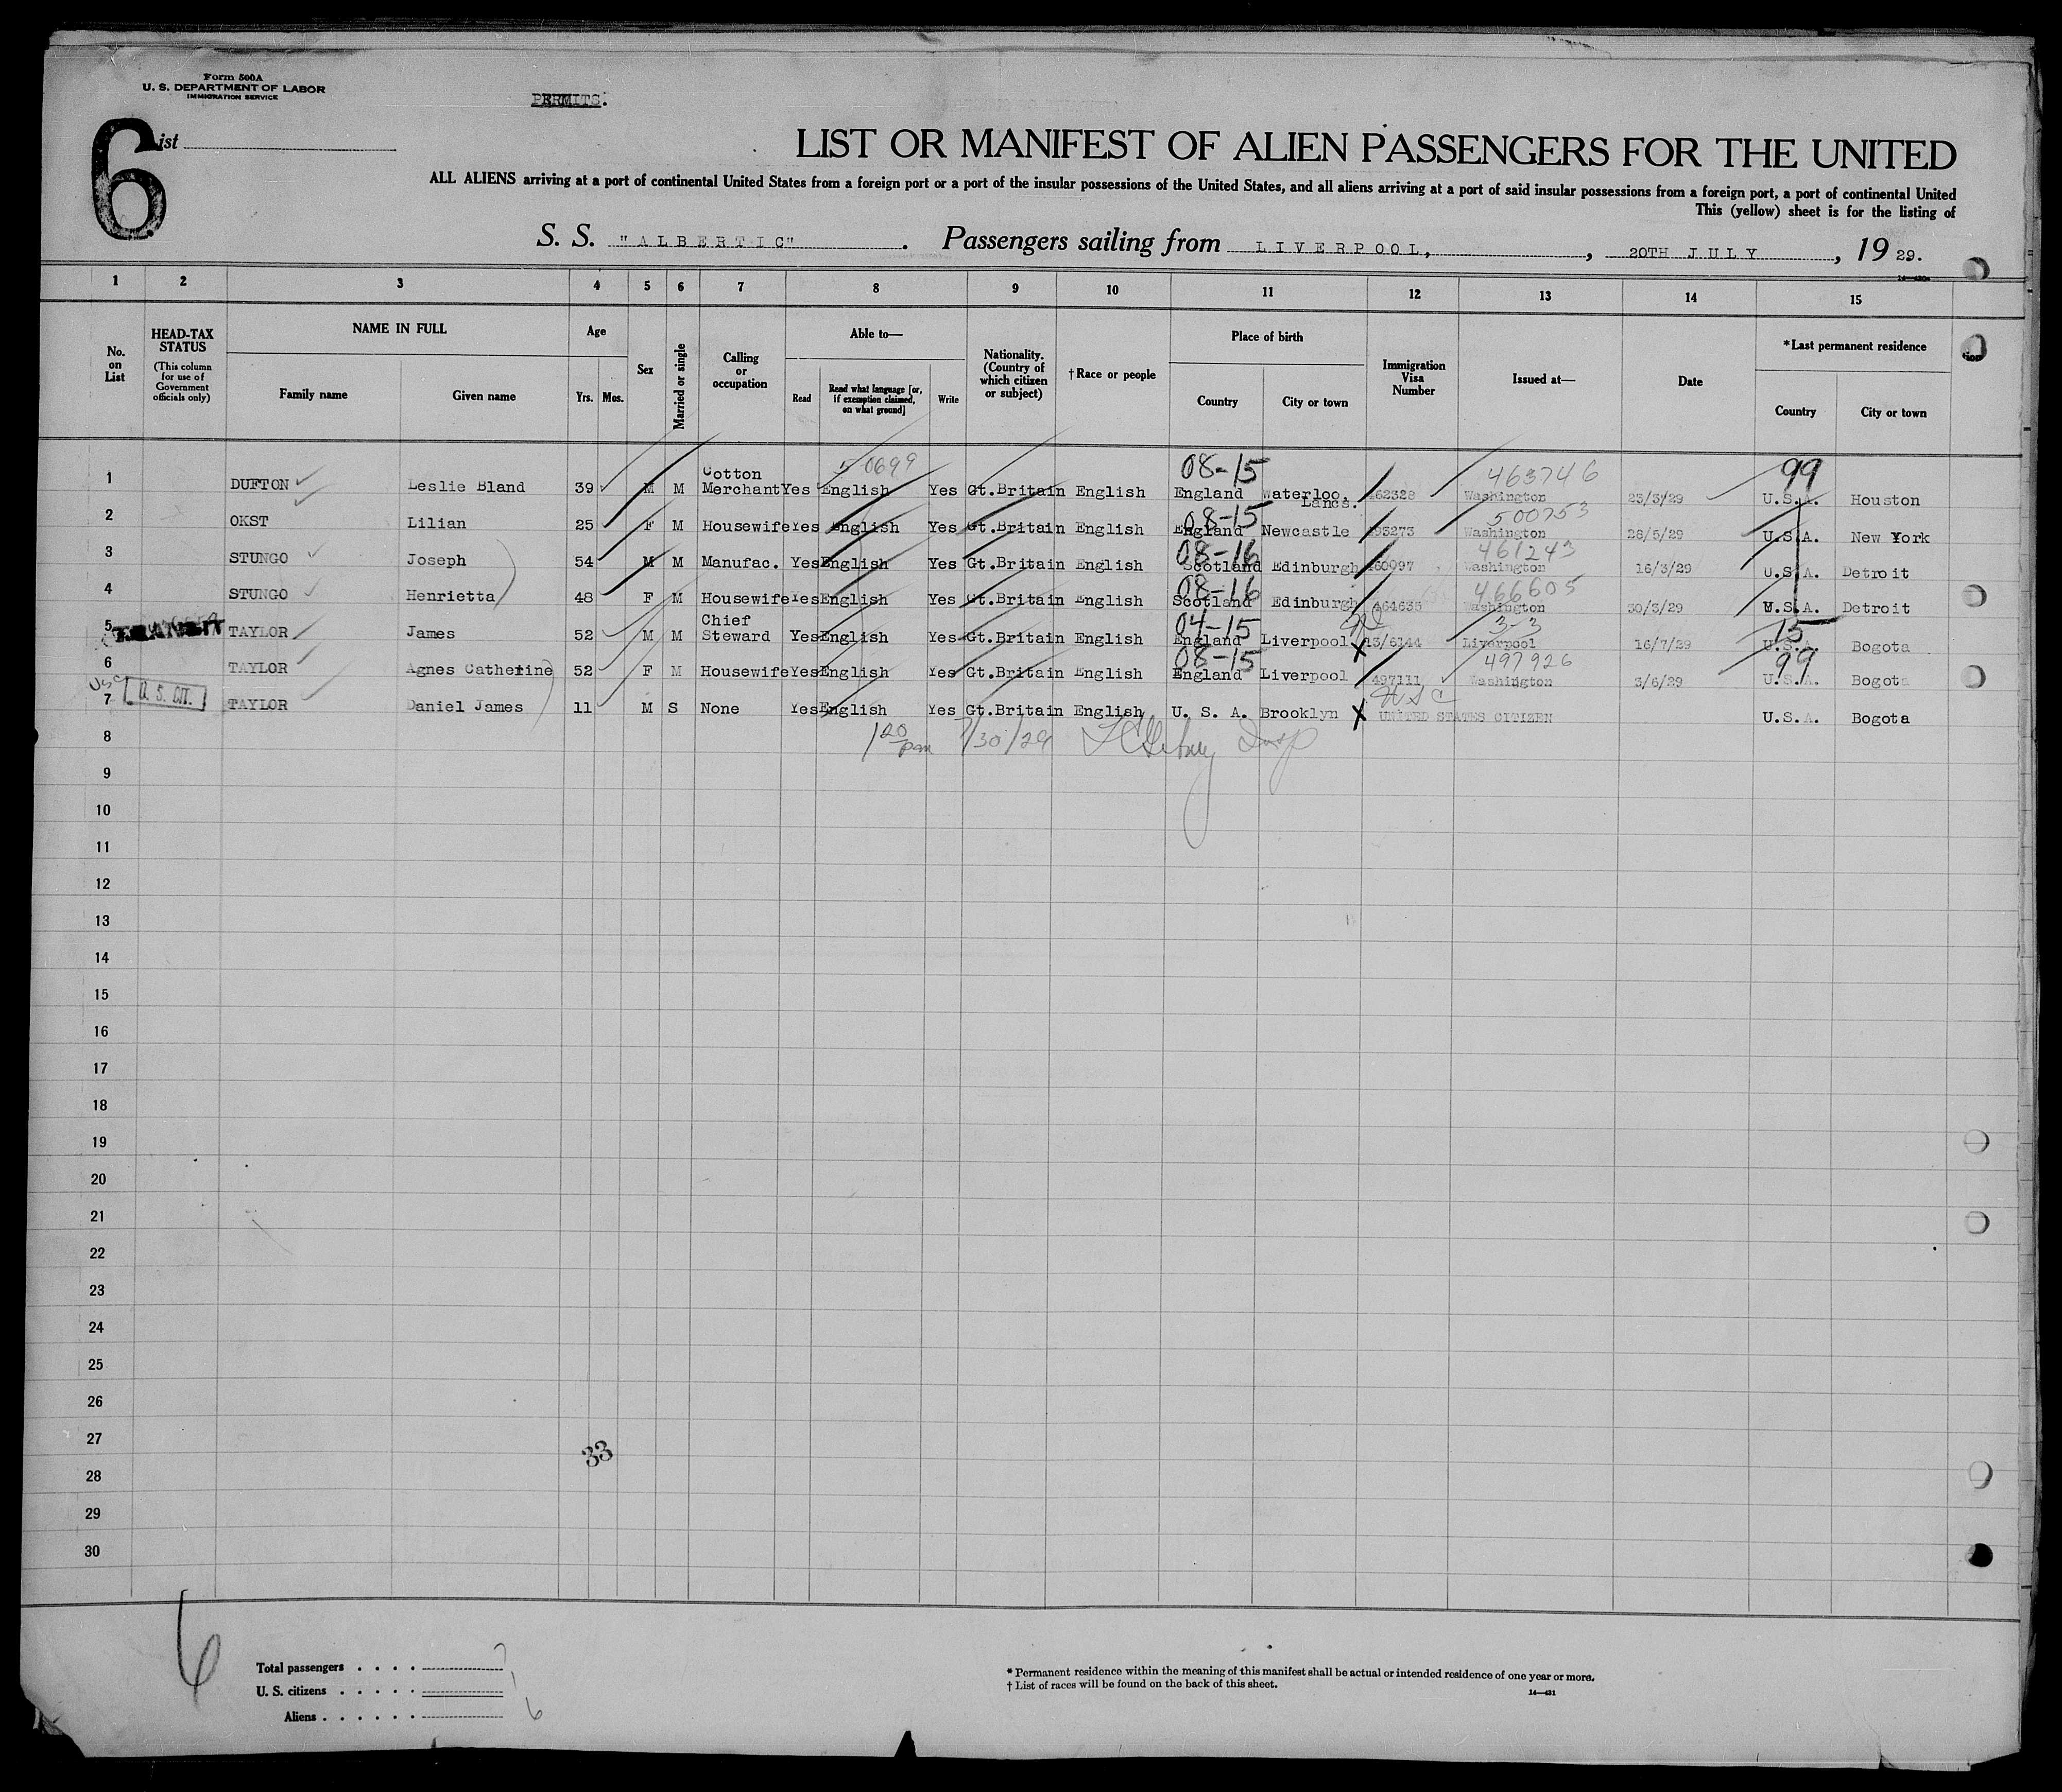 Form 500A
U. S. DEPARTMENT OF LABOR
IMMIGRATION SERVICE
PERMITS.
6
ist
LIST OR MANIFEST OF ALIEN PASSENGERS FOR THE UNITED
ALL ALIENS arriving at a port of continental United States from a foreign port or a port of the insular possessions of the United States, and all aliens arriving at a port of said insular possessions from a foreign port, a port of continental United
This (yellow) sheet is for the listing of
S. S. "ALBERTIC". Passengers sailing from LIVERPOOL, , 20TH JULY, 19 29.
1 2 3 4 5 6 7 8 9 10 11 12 13 14 15
No. on List
HEAD-TAX STATUS (This column for use of Government officials only)
NAME IN FULL
Family name Given name
Age
Yrs. Mos.
Sex
Married or single
Calling or occupation
Able to—
Read Read what language [or, if exemption claimed, on what ground] Write
Nationality. (Country of which citizen or subject)
†Race or people
Place of birth
Country City or town
Immigration Visa Number
Issued at—
Date
*Last permanent residence
Country City or town
50699 08-15 463746 99
1 DUFTON Leslie Bland 39 M M Cotton Merchant Yes English Yes Gt.Britain English England Waterloo, Lancs. 462328 Washington 23/3/29 U.S.A. Houston
08-15 500753
2 OKST Lilian 25 F M Housewife Yes English Yes Gt.Britain English England Newcastle 493273 Washington 28/5/29 U.S.A. New York
08-16 461243
3 STUNGO Joseph 54 M M Manufac. Yes English Yes Gt.Britain English Scotland Edinburgh 460097 Washington 16/3/29 U.S.A. Detroit
08-16 466605
4 STUNGO Henrietta 48 F M Housewife Yes English Yes Gt.Britain English Scotland Edinburgh 464635 Washington 30/3/29 U.S.A. Detroit
04-15 3-3 15
5 TRANSIT TAYLOR James 52 M M Chief Steward Yes English Yes Gt.Britain English England Liverpool X 13/6144 Liverpool 16/7/29 U.S.A. Bogota
08-15 497926 99
6 TAYLOR Agnes Catherine 52 F M Housewife Yes English Yes Gt.Britain English England Liverpool 497111 Washington 3/6/29 U.S.A. Bogota
USC U. S. CIT. USC
7 TAYLOR Daniel James 11 M S None Yes English Yes Gt.Britain English U. S. A. Brooklyn X UNITED STATES CITIZEN U.S.A. Bogota
8 1 20 pm 7/30/29 Insp
9
10
11
12
13
14
15
16
17
18
19
20
21
22
23
24
25
26
27
33
28
29
30
6
Total passengers . . . . 7
U. S. citizens . . . . . 1
Aliens . . . . . . 6
* Permanent residence within the meaning of this manifest shall be actual or intended residence of one year or more.
† List of races will be found on the back of this sheet.
14—431